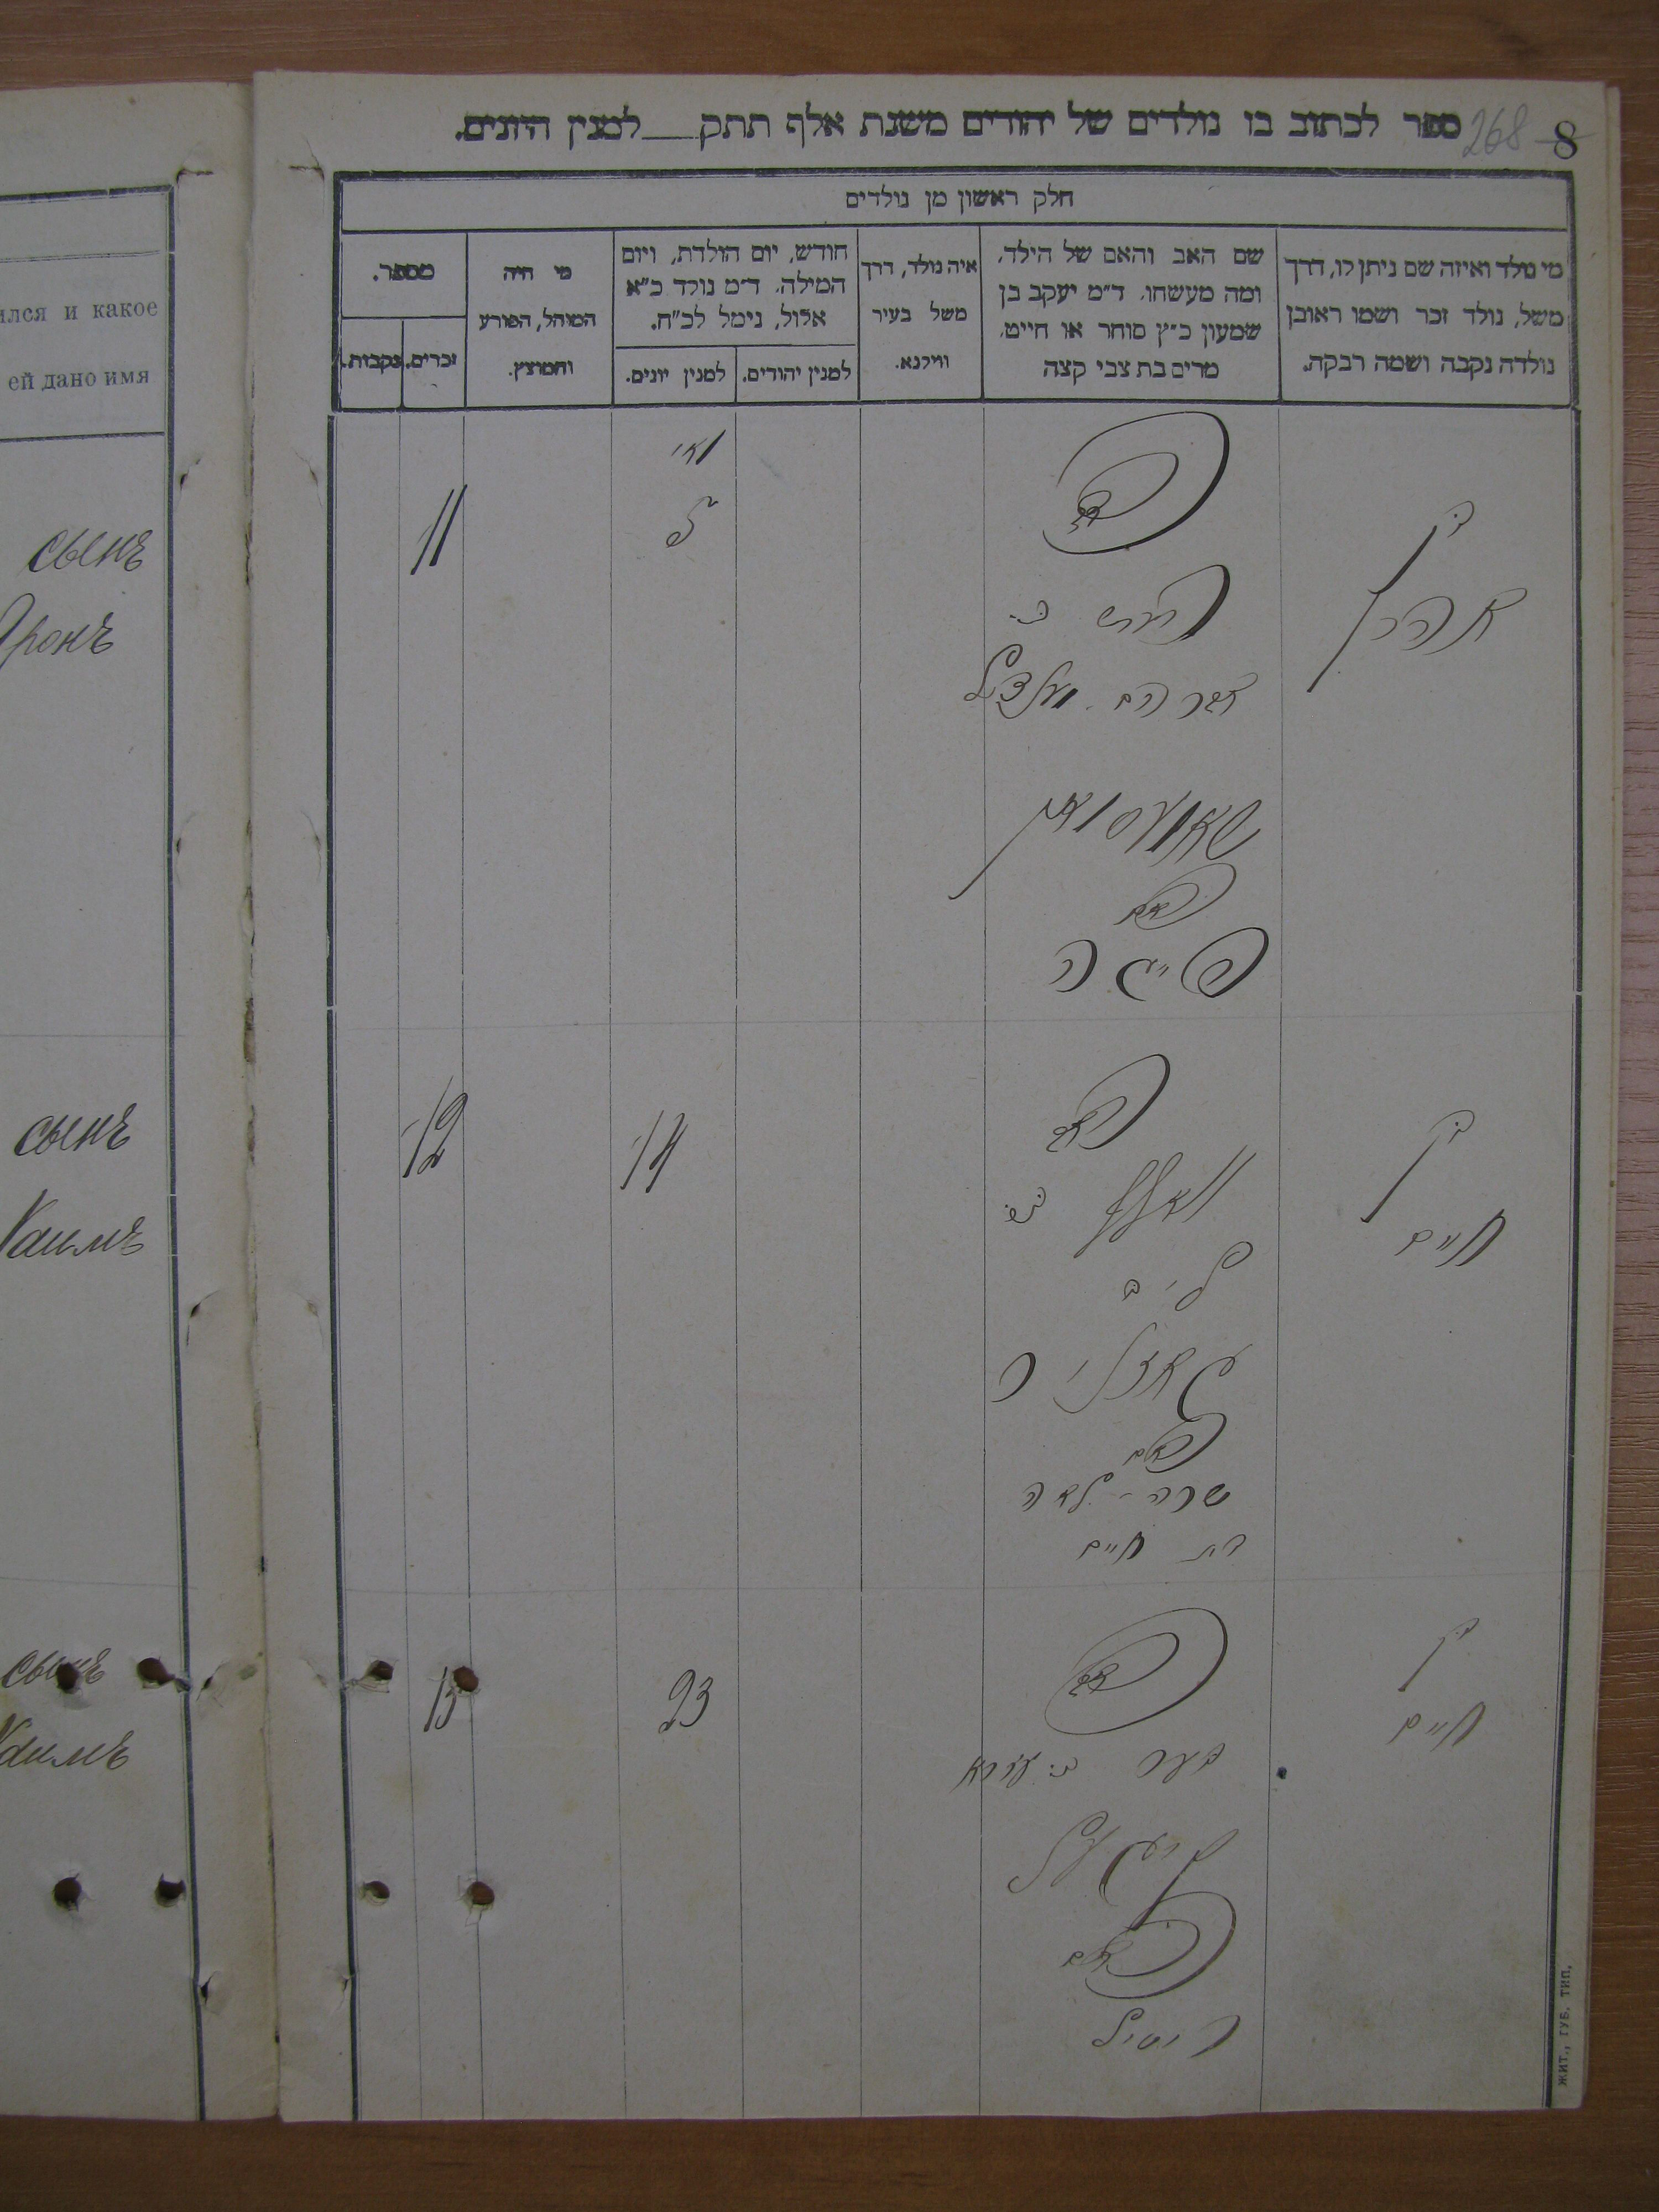 8
268
ספר לכתוב בו נולדים של יהודים משנת אלף תתק___למנין היונים.
חלק ראשון מן נולדים
מי נולד ואיזה שם ניתן לו, דרך
משל, נולד זכר ושמו ראובן
נולדה נקבה ושמה רבקה.
שם האב והאם של הילד,
ומה מעשהו. ד"מ יעקב בן
שמעון כ"ץ סוחר או חייט,
מרים בת צבי קצה
איה נולד, דרך
משל בעיר
ווילנא.
חודש, יום הולדת, ויום
המילה. ד"מ נולד כ"א
אלול, נימל לכ"ח.
למנין יהודים.
למנין יונים.
מי היה
המוהל, הפורע
והמוצץ.
מספר.
זכרים.
נקבות.
בן
אהרן
האב
הירש ב:
אברהם
האם
פייגה
מאי
11
בן
חיים
האב
וואלף ב:
ליב
האם
שרה - לאה
בת חיים
14
12
בן
חיים
האב
בער ב: עזרא
האם
23
13
ился и какое
ей дано имя
сынъ
Аронъ
сынъ
Хаимъ
сынъ
Хаимъ
ЖИТ., ГУБ. ТИП.